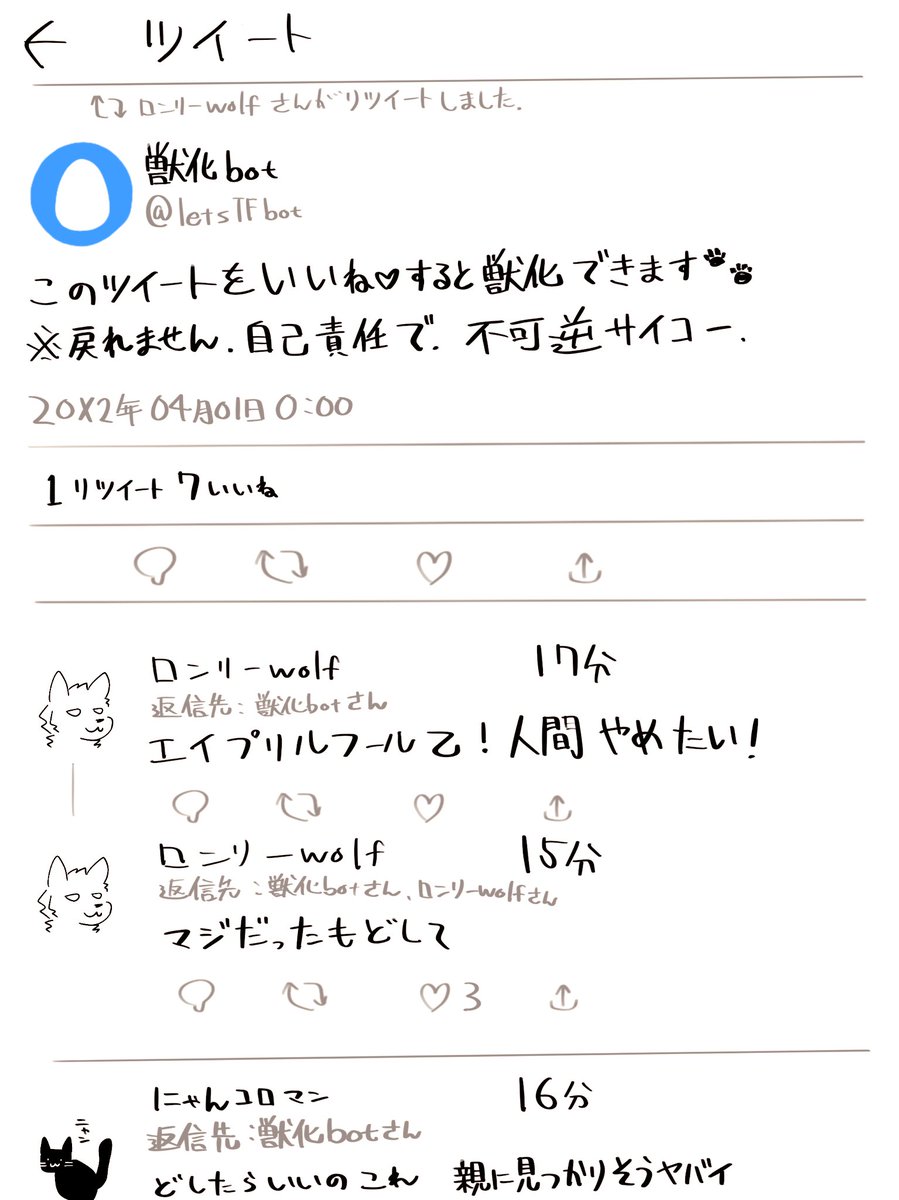 ← ツイート
ロンリーwolf さんがリツイートしました.
獣化bot
@letsTFbot
このツイートをいいね♡すると獣化できます🐾
※戻れません.自己責任で. 不可逆サイコー.
20X2年04月01日 0:00
1 リツイート 7 いいね
ロンリーwolf 17分
返信先:獣化botさん
エイプリルフール乙!人間やめたい!
ロンリーwolf 15分
返信先:獣化botさん、ロンリーwolfさん
マジだったもどして
♡3
にゃんコロマン 16分
ニャン
返信先:獣化botさん
どしたらいいのこれ 親に見っかりそうヤバイ